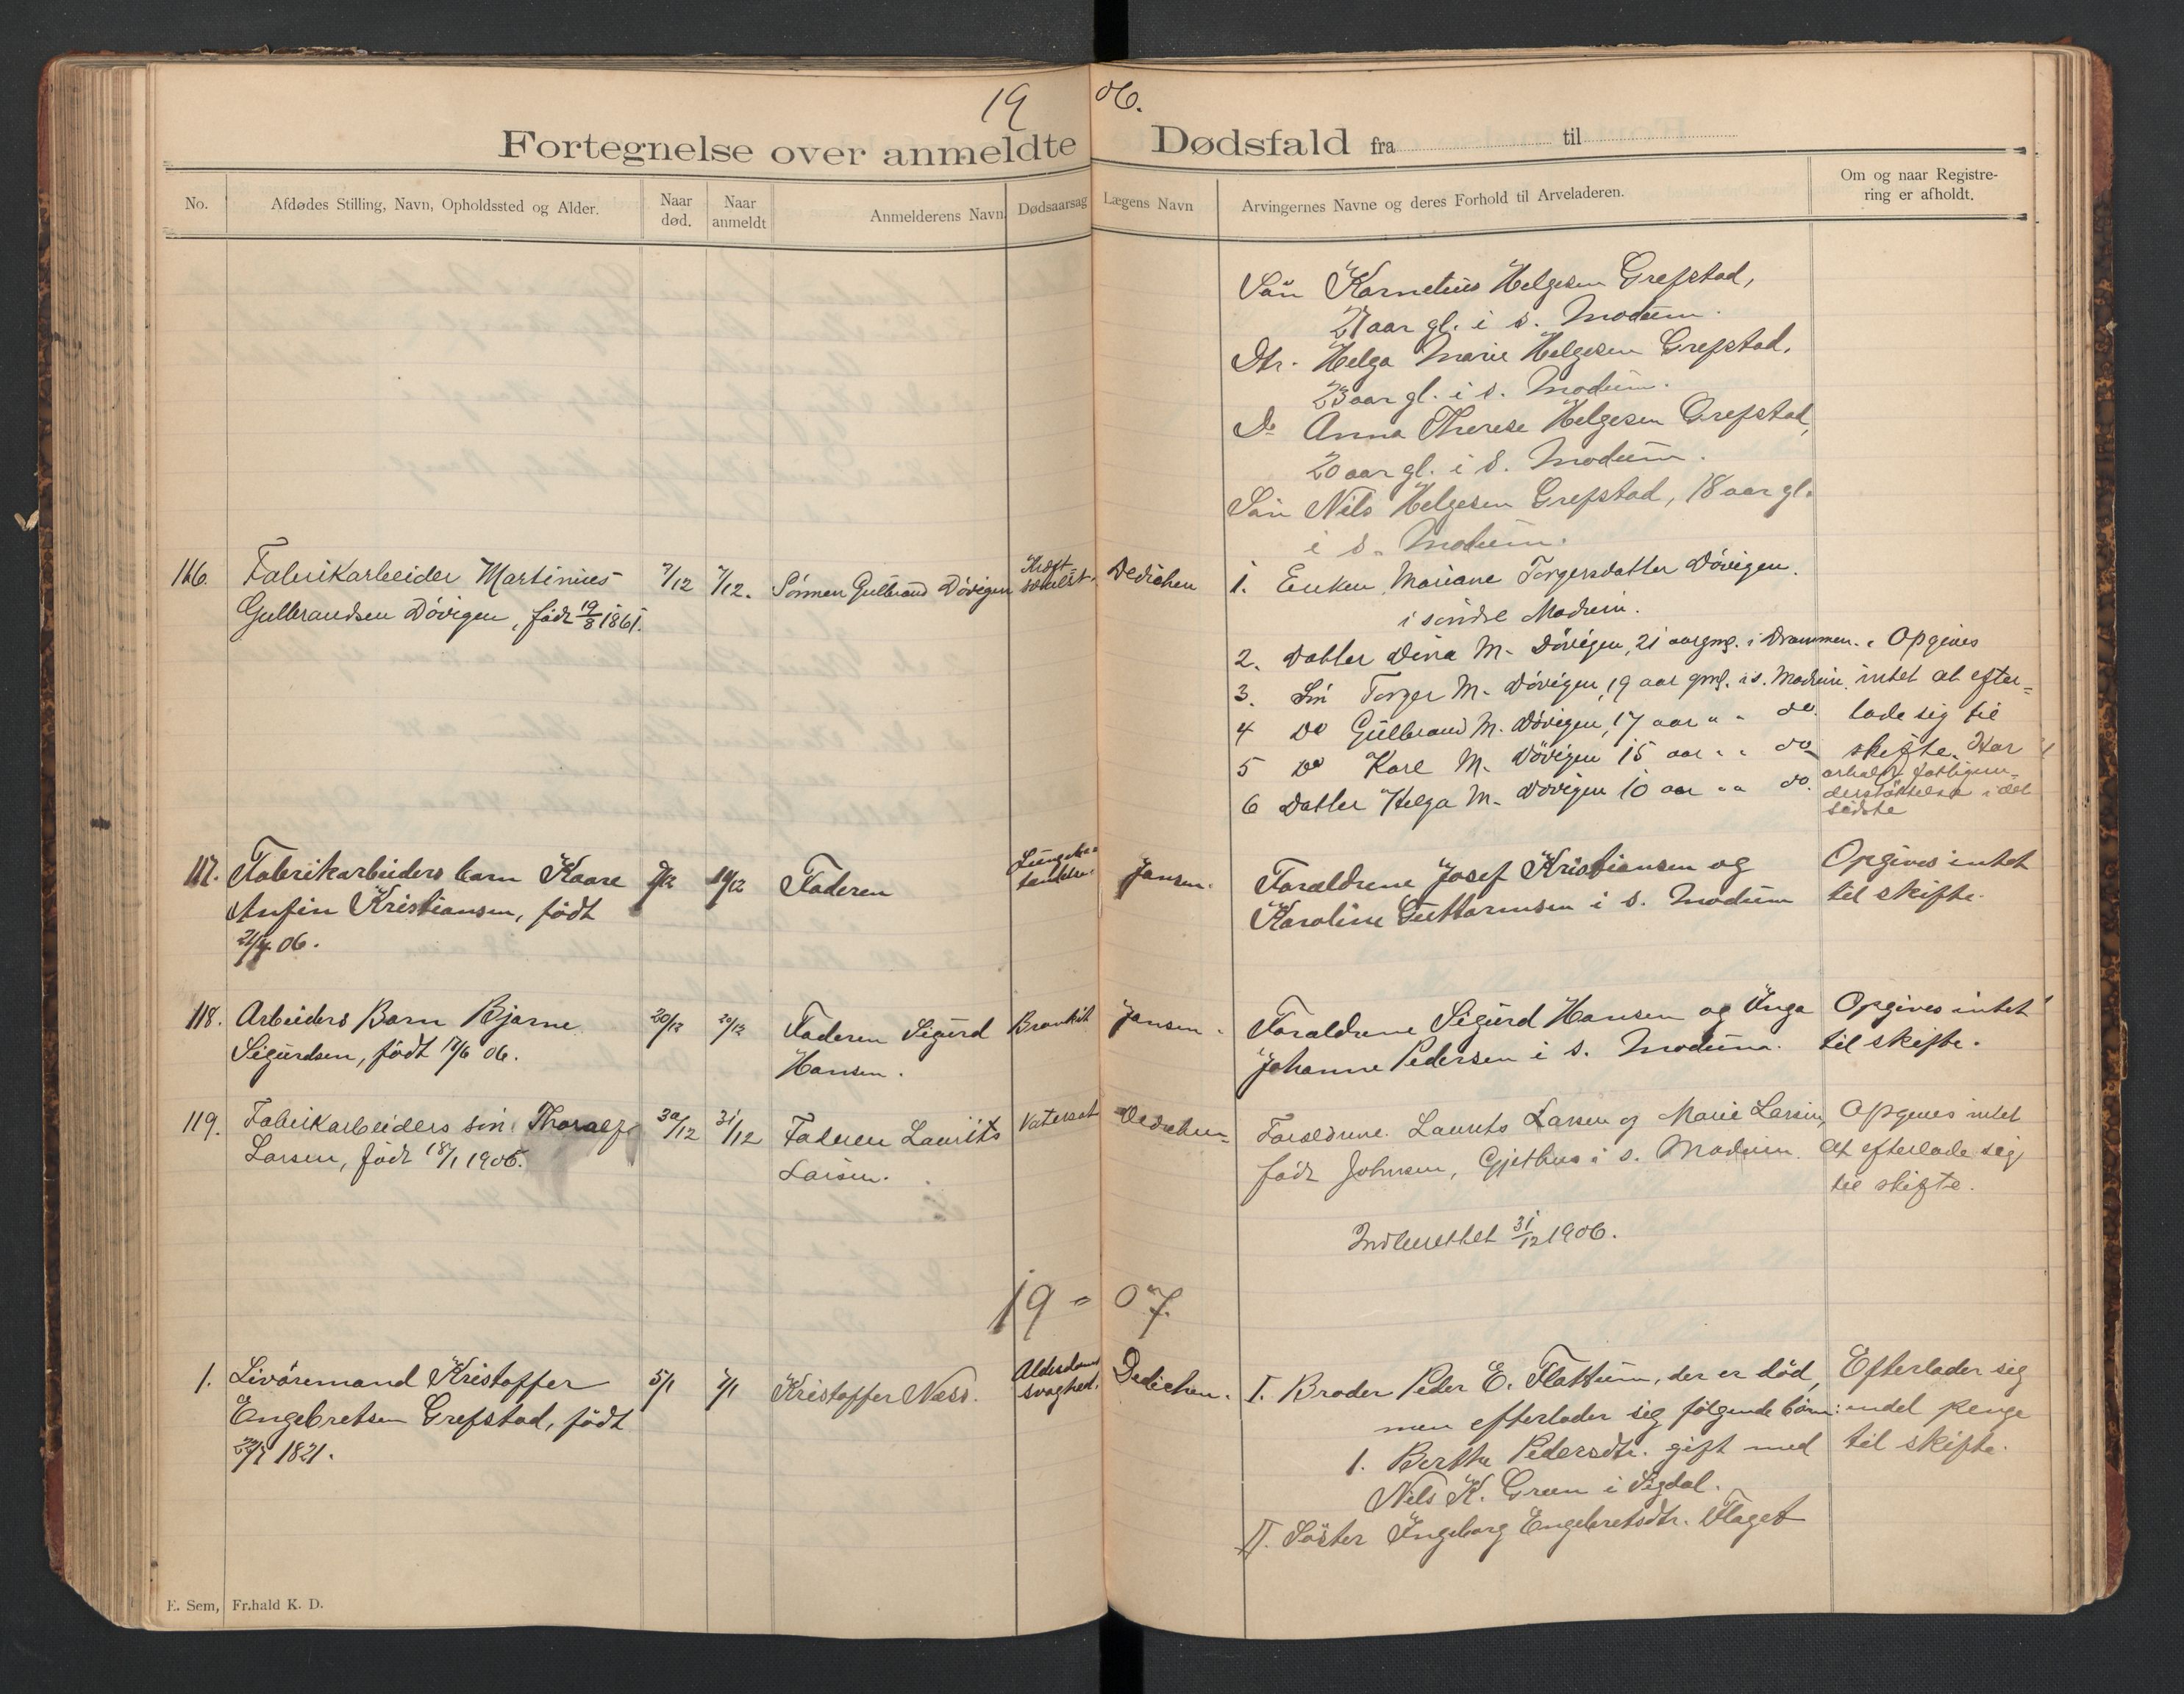 1906.
Fortegnelse over anmeldte Dødsfald fra til
No.
Afdødes Stilling, Navn, Opholdssted og Alder.
Naar død.
Naar anmeldt
Anmelderens Navn
Dødsaarsag
Lægens Navn
Arvingernes Navne og deres Forhold til Arveladeren.
Om og naar Registre-
ring er afholdt.
Sön Kornelius Helgesen Grefstad,
27 aar gl. i s. Modum.
Dtr. Helga Marie Helgesen Grefstad,
23 aar gl. i s. Modum.
Do Anna Therese Helgesen Grefstad,
20 aar gl. i S. Modum.
Sön Nils Helgesen Grefstad, 18 aar gl.
i s. Modum.
116. Fabrikarbeider Martinius
Gulbrandsen Dövigen, födt 19/8 1861.
7/12
7/12.
Sönnen Gulbrand Dövigen
Kræft
Dedichen
1. Enken Mariane Torgersdatter Dövigen.
i söndre Modum.
2. Datter Dina M. Dövigen, 21 aar gml. i Drammen.
3. Sön Torger M. Dövigen, 19 aar gml. i s. Modum.
4 Do Gulbrand M. Dövigen, 17 aar " " do.
5 Do Karl M. Dövigen 15 aar " " do
6 Datter Helga M. Dövigen 10 aar " " do.
Opgives
intet at efter=
lade sig til
skifte. Har
erholdt fattigun=
derstöttelse i det
sidste
117. Fabrikarbeiders barn Kaare
Anfin Kristiansen, födt
21/4 06.
9/12
10/12
Faderen
Lungebe=
tændelse.
Jansen.
Forældrene Josef Kristiansen og
Karoline Guttormsen i s. Modum
Opgives intet
til skifte.
118. Arbeiders Barn Bjarne
Sigurdsen, födt 17/6 06.
20/12
20/12
Faderen Sigurd
Hansen.
Bronkit
Jansen.
Forældrene Sigurd Hansen og Inga
Johanne Pedersen i s. Modum.
Opgives intet
til skifte.
119. Fabrikarbeiders sön Thoralf
Larsen, födt 18/1 1906.
30/12
31/12
Faderen Laurits
Larsen.
Vatersot
Dedichen
Forældrene Laurits Larsen og Marie Larsen,
födt Johnsen, Gjethus i s. Modum.
Opgives intet
at efterlade sig
til skifte.
Indberettet 31/12 1906.
19 = 07.
1. Livöremand Kristoffer
Engebretsen Grefstad, födt
1821.
5/1
7/1
Kristoffer Næss.
Alderdoms
svaghed.
Dedichen.
I. Broder Peder E. Flattum, der er död,
men efterlader sig fölgende börn:
1. Berthe Pedersdtr. gift med
Nils K. Green i Sigdal.
II. Söster Ingeborg Engebretsdtr. Flaget
Efterlader sig
endel penge
til skifte.
E. Sem, Fr.hald K. D.